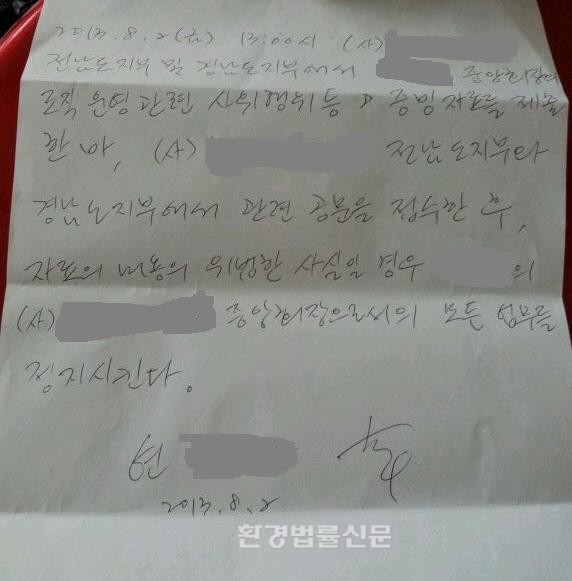 2013.8.2(금) 13:00시 (사)
전남도지부 및 경남도지부에서 중앙회장의
조직 운영 관련 사위행위 등 증빙자료를 제출
한 바, (사) 전남도지부와
경남도지부에서 관련 공문을 접수한 후,
자료의 내용의 위법한 사실일 경우 의
(사) 중앙회장으로써의 모든 업무를
정지시킨다.
현
2013.8.2
환경법률신문